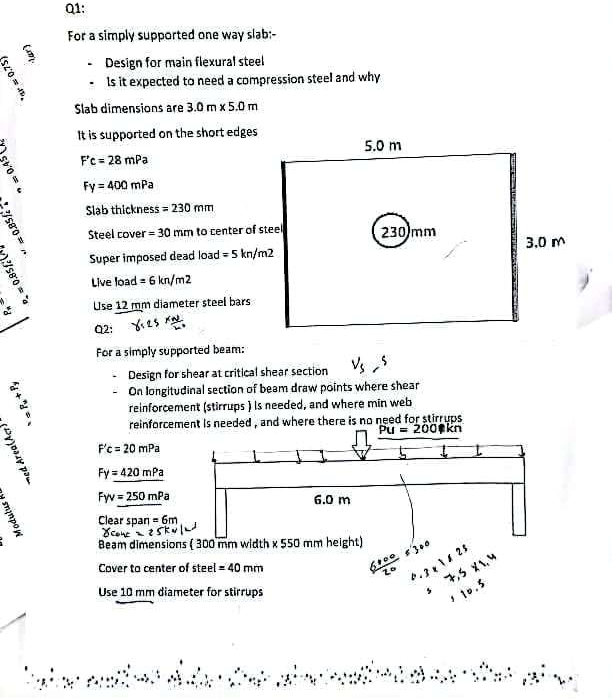 Q1:
For a simply supported one way slab:-
- Design for main flexural steel
- Is it expected to need a compression steel and why
Slab dimensions are 3.0 m x 5.0 m
It is supported on the short edges
F'c = 28 mPa
Fy = 400 mPa
Slab thickness = 230 mm
Steel cover = 30 mm to center of steel
Super imposed dead load = 5 kn/m2
Live load = 6 kn/m2
Use 12 mm diameter steel bars
5.0 m
230 mm
3.0 m
Q2:
For a simply supported beam:
- Design for shear at critical shear section
Vs, s
- On longitudinal section of beam draw points where shear
reinforcement (stirrups) is needed, and where min web
reinforcement is needed, and where there is no need for stirrups
Pu = 200 kn
F'c = 20 mPa
Fy = 420 mPa
Fyv = 250 mPa
6.0 m
Clear span = 6m
Beam dimensions ( 300 mm width x 550 mm height)
Cover to center of steel = 40 mm
Use 10 mm diameter for stirrups
6000 = 300
20
7.5 x 1.4
10.5
Modulus